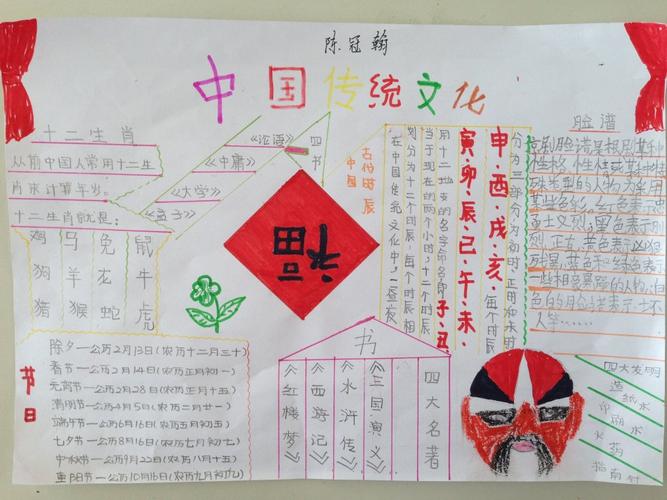 陈冠翰
中国传统文化
十二生肖
从前中国人常用十二生
肖来计算年岁。
十二生肖就是：
鸡 马 兔 鼠
狗 羊 龙 牛
猪 猴 蛇 虎
四书
《论语》
《中庸》
《大学》
《孟子》
福
中国
古代时辰
在中国传统文化中，一昼夜
划分为十二个时辰，每个时辰相
当于现在的两个小时，十二个时辰
用十二地支的名字命名即子、丑、
寅、卯、辰、巳、午、未、
申、酉、戌、亥，每个时辰
分为三部分，为初时、正时和末时
脸谱
京剧脸谱是根据某种
性格、性情或某种特
殊类型的人物为采用
某些色彩，红色表示忠
勇士义烈，黑色表示刚
烈、正直、
节日
除夕—公历2月13日(农历十二月三十)
春节—公历2月14日(农历正月初一)
元宵节—公历2月28日(农历正月十五)
清明节—公历4月5日(农历二月廿一)
端午节—公历6月16日(农历五月初五)
七夕节—公历8月16日(农历七月初七)
中秋节—公历9月22日(农历八月十五)
重阳节—公历10月16日(农历九月初九)
书
四大名著
《三国演义》
《水浒传》
《西游记》
《红楼梦》
四大发明
造纸术
印刷术
火药
指南针